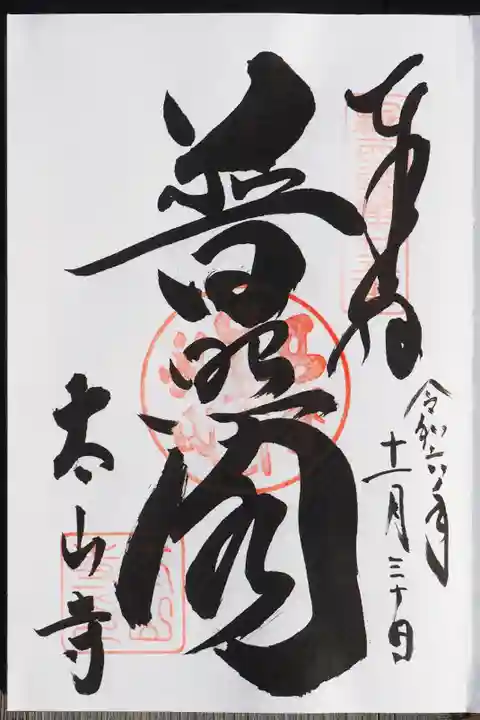 奉拝
令和六年
十一月三十日
普照閣
太山寺